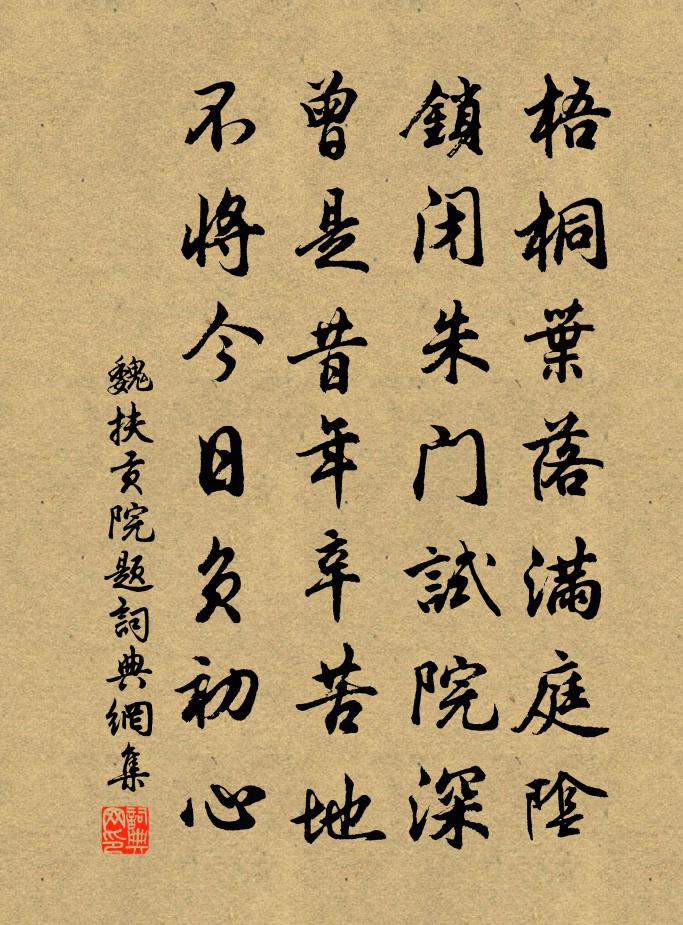 梧桐葉落滿庭陰
鎖閉朱門試院深
曾是昔年辛苦地
不將今日負初心
魏扶貢院題詞典網集
詞典
网印